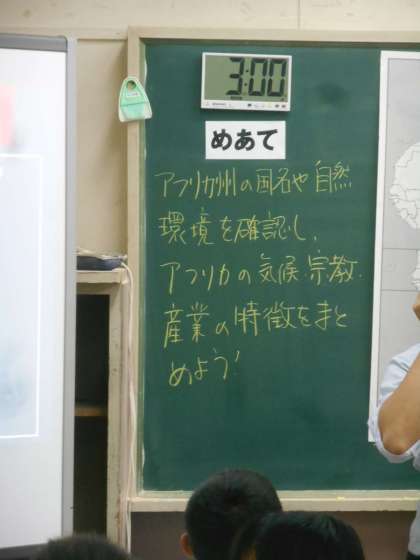 3:00
めあて
アフリカ州の国名や自然
環境を確認し、
アフリカの気候・宗教・
産業の特徴をまと
めよう!